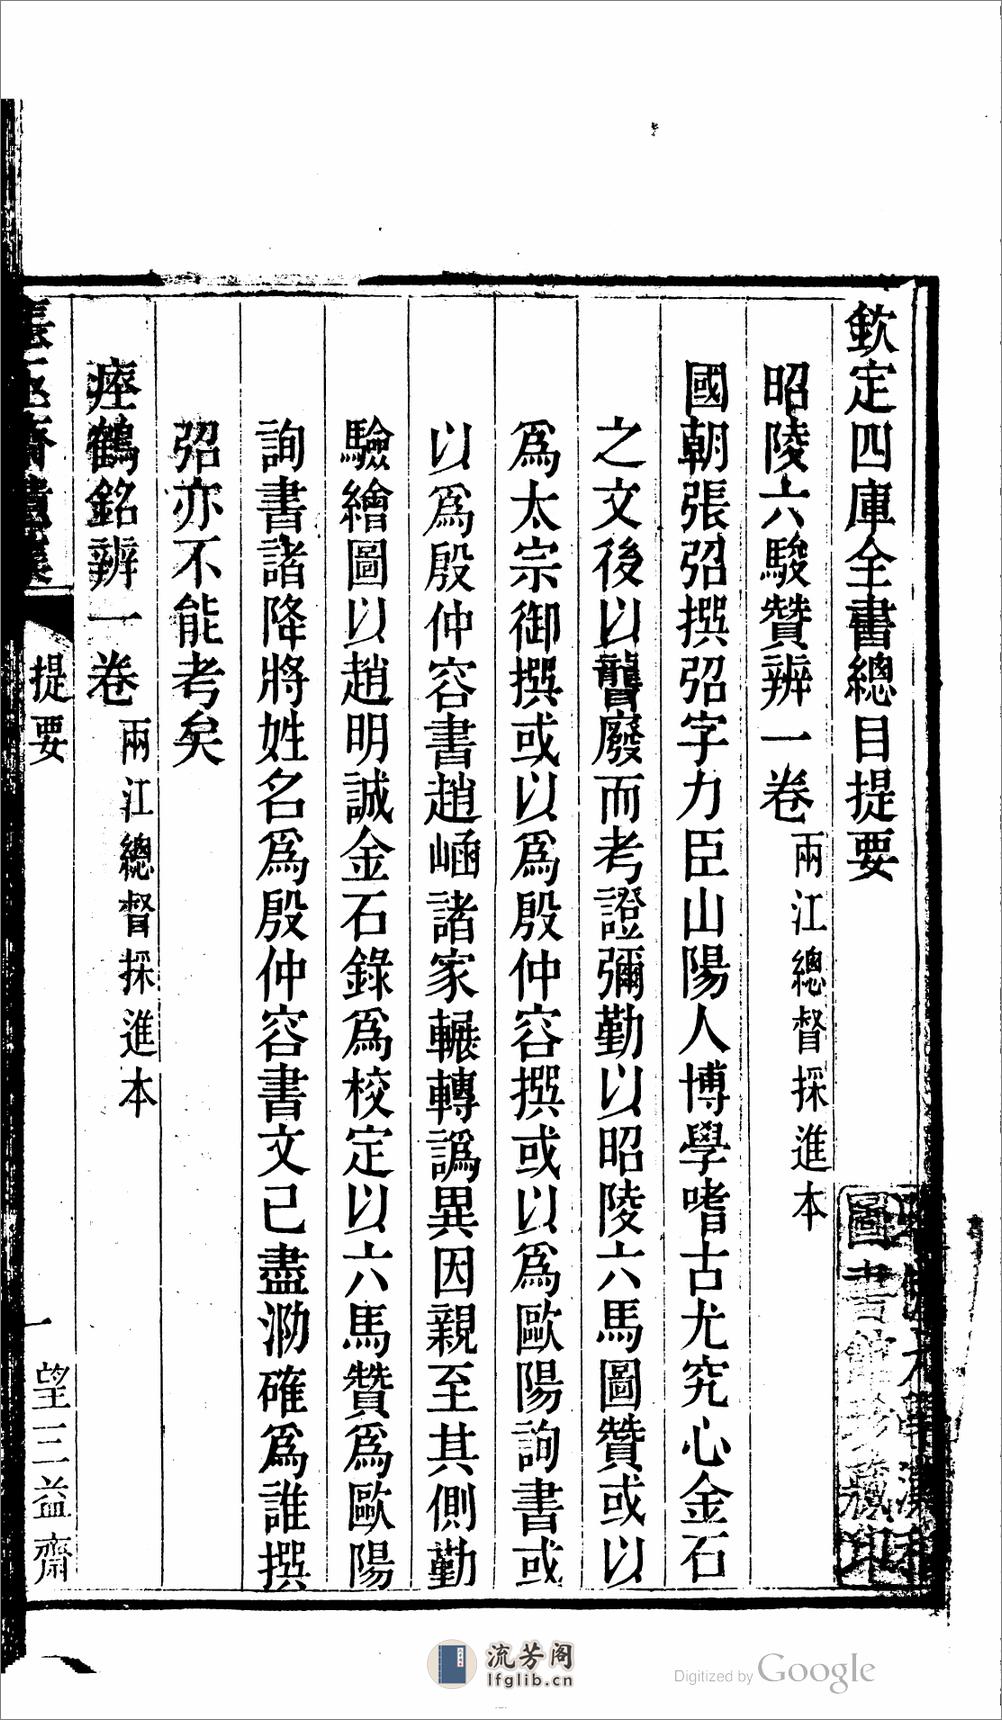 欽定四庫全書總目提要
昭陵六駿贊辨一卷兩江總督採進本
國朝張弨撰弨字力臣山陽人博學嗜古尤究心金石
之文後以聾廢而考證彌勤以昭陵六馬圖贊或以
爲太宗御撰或以爲殷仲容撰或以爲歐陽詢書或
以爲殷仲容書趙崡諸家輾轉譌異因親至其側勤
驗繪圖以趙明誠金石錄爲校定以六馬贊爲歐陽
詢書諸降將姓名爲殷仲容書文已盡泐確爲誰撰
弨亦不能考矣
瘞鶴銘辨一卷兩江總督採進本
提要
一
望三益齋
圖書館珍藏印
流芳阁
lfglib.cn
Digitized by Google